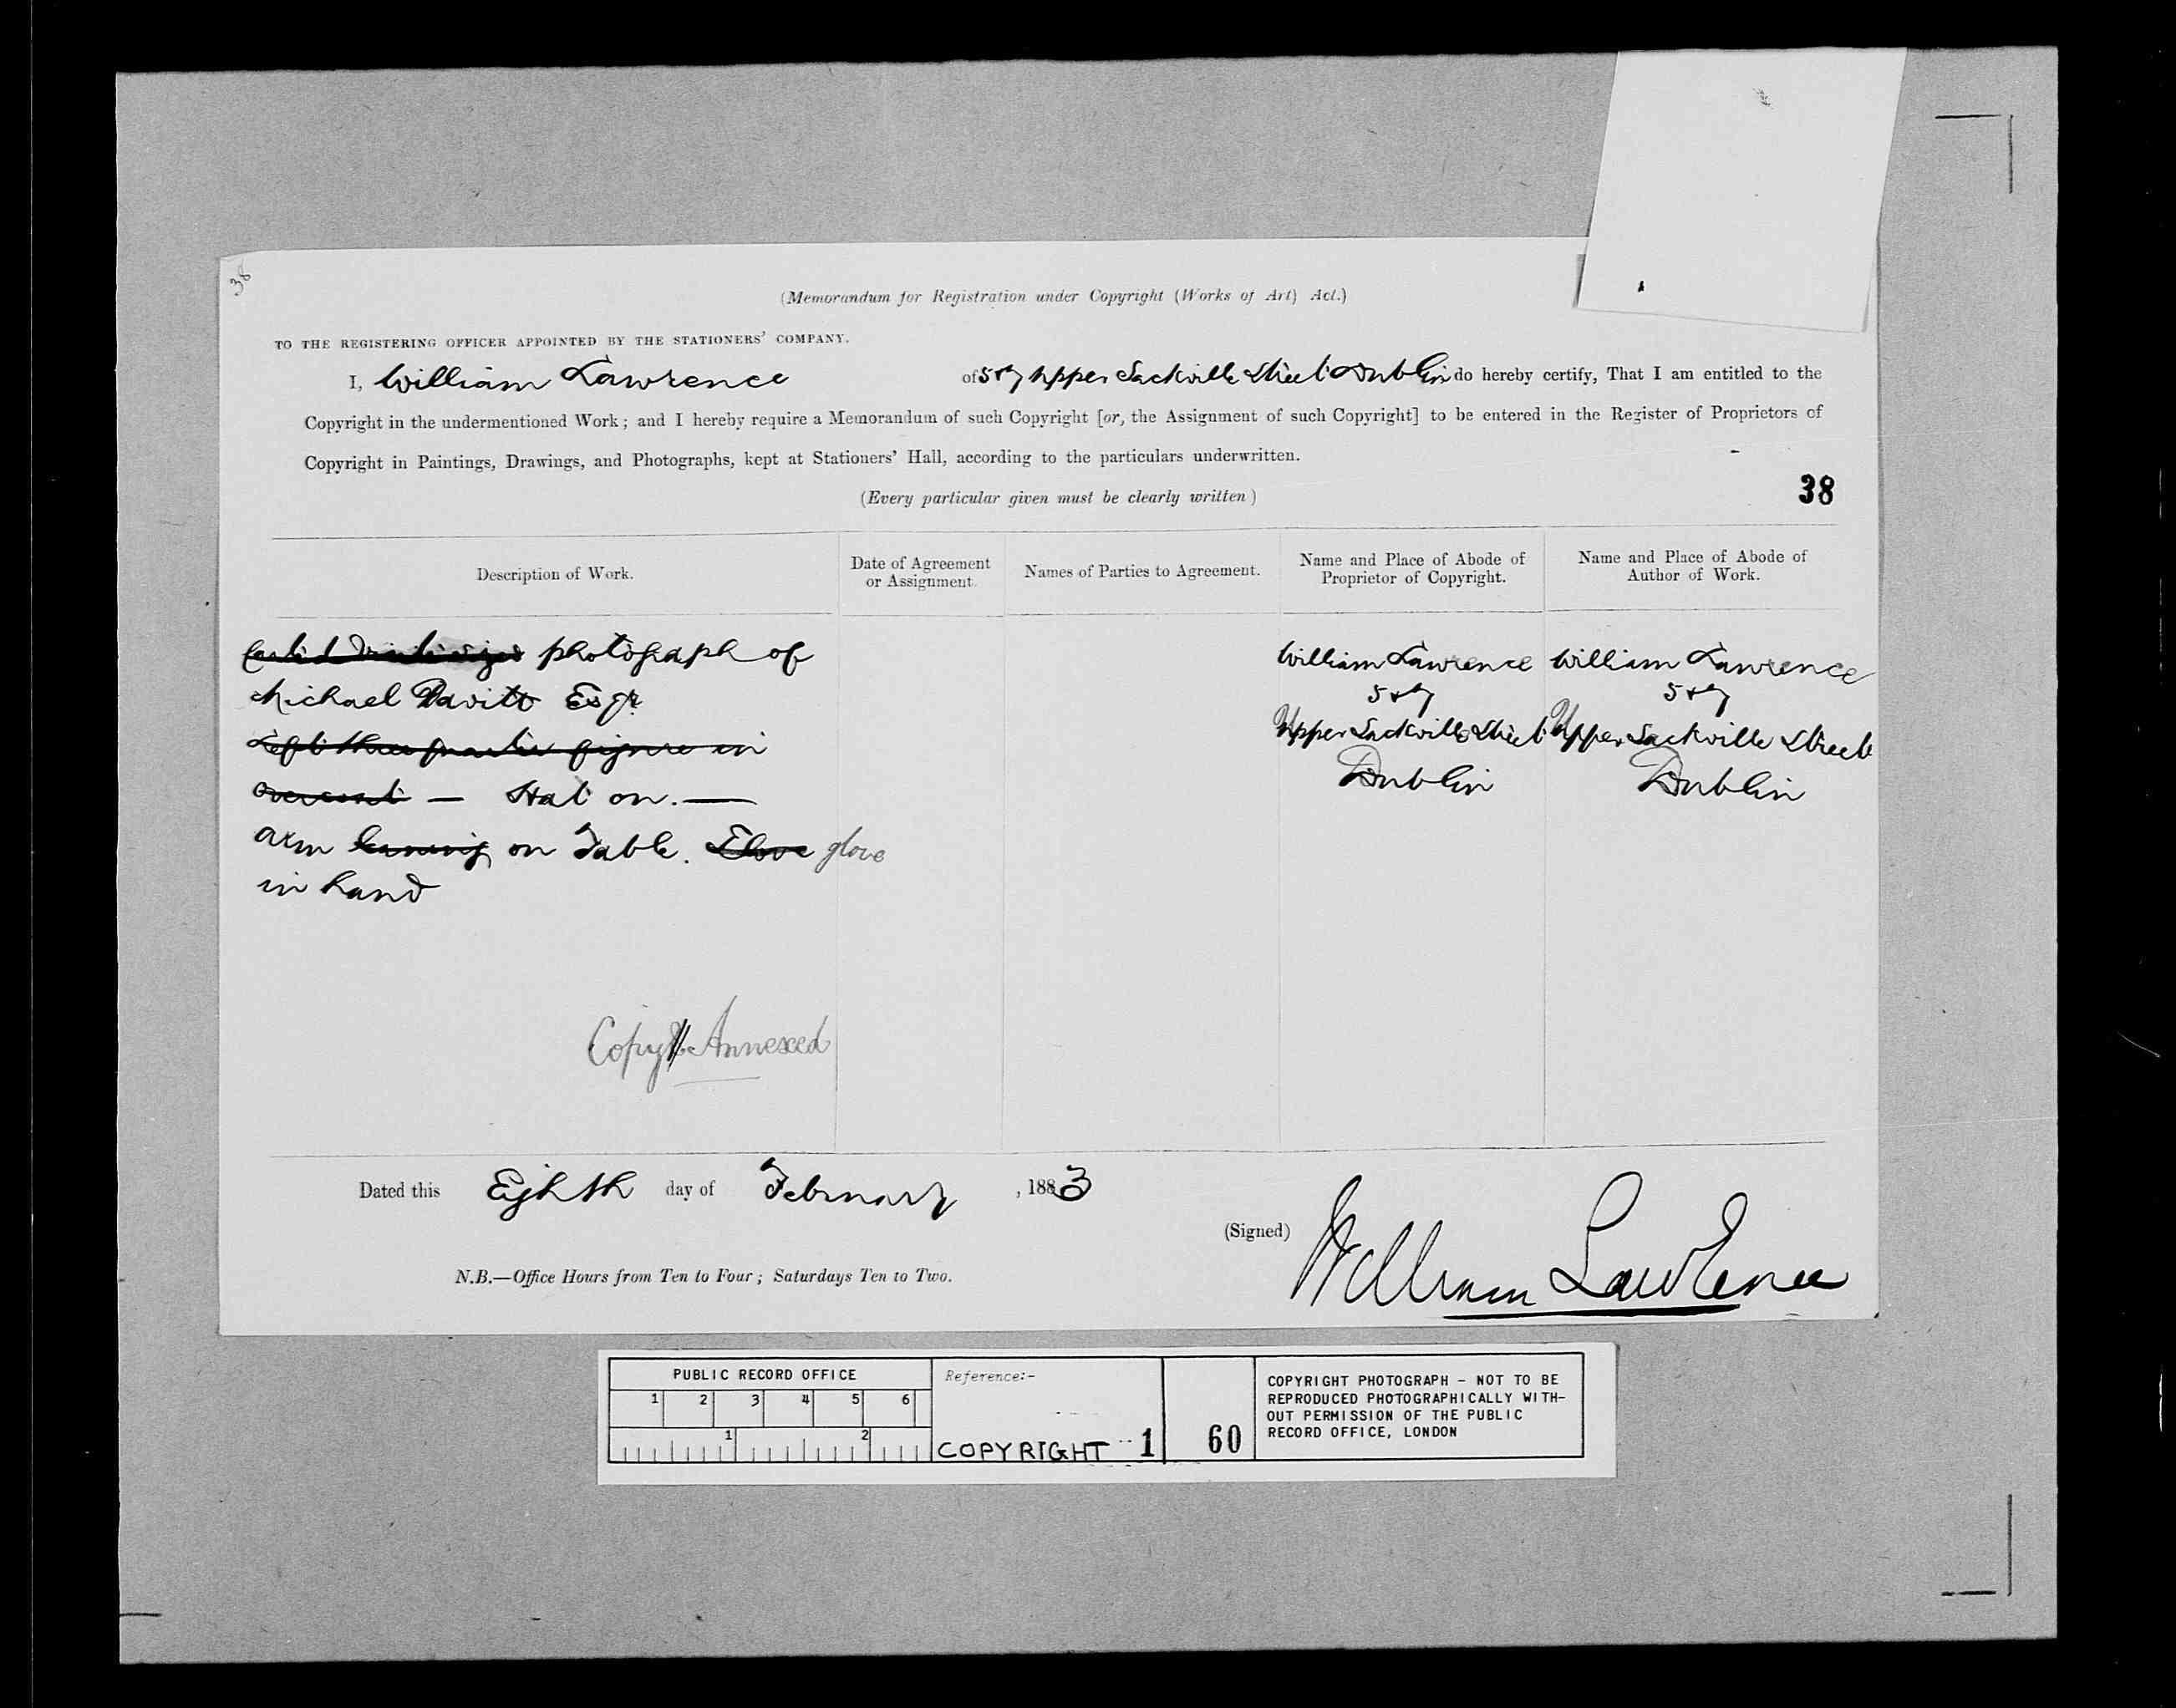 38
(Memorandum for Registration under Copyright (Works of Art) Act.)
TO THE REGISTERING OFFICER APPOINTED BY THE STATIONERS' COMPANY.
I, William Lawrence of 5 & 7 Upper Sackville Street Dublin do hereby certify, That I am entitled to the
Copyright in the undermentioned Work; and I hereby require a Memorandum of such Copyright [or, the Assignment of such Copyright] to be entered in the Register of Proprietors of
Copyright in Paintings, Drawings, and Photographs, kept at Stationers' Hall, according to the particulars underwritten.
(Every particular given must be clearly written)
38
Description of Work.
Date of Agreement
or Assignment.
Names of Parties to Agreement.
Name and Place of Abode of
Proprietor of Copyright.
Name and Place of Abode of
Author of Work.
photograph of
Michael Davitt Esqr.
Left three quarter figure in
overcoat — Hat on. —
arm leaning on Table. Glove glove
in hand
Annexed
William Lawrence
5 & 7
Upper Sackville Street
Dublin
William Lawrence
5 & 7
Upper Sackville Street
Dublin
Dated this Eighth day of February, 1883
(Signed) William Lawrence
N.B.—Office Hours from Ten to Four; Saturdays Ten to Two.
PUBLIC RECORD OFFICE
1 2 3 4 5 6
1 2
Reference:-
COPYRIGHT 1
60
COPYRIGHT PHOTOGRAPH - NOT TO BE
REPRODUCED PHOTOGRAPHICALLY WITH-
OUT PERMISSION OF THE PUBLIC
RECORD OFFICE, LONDON